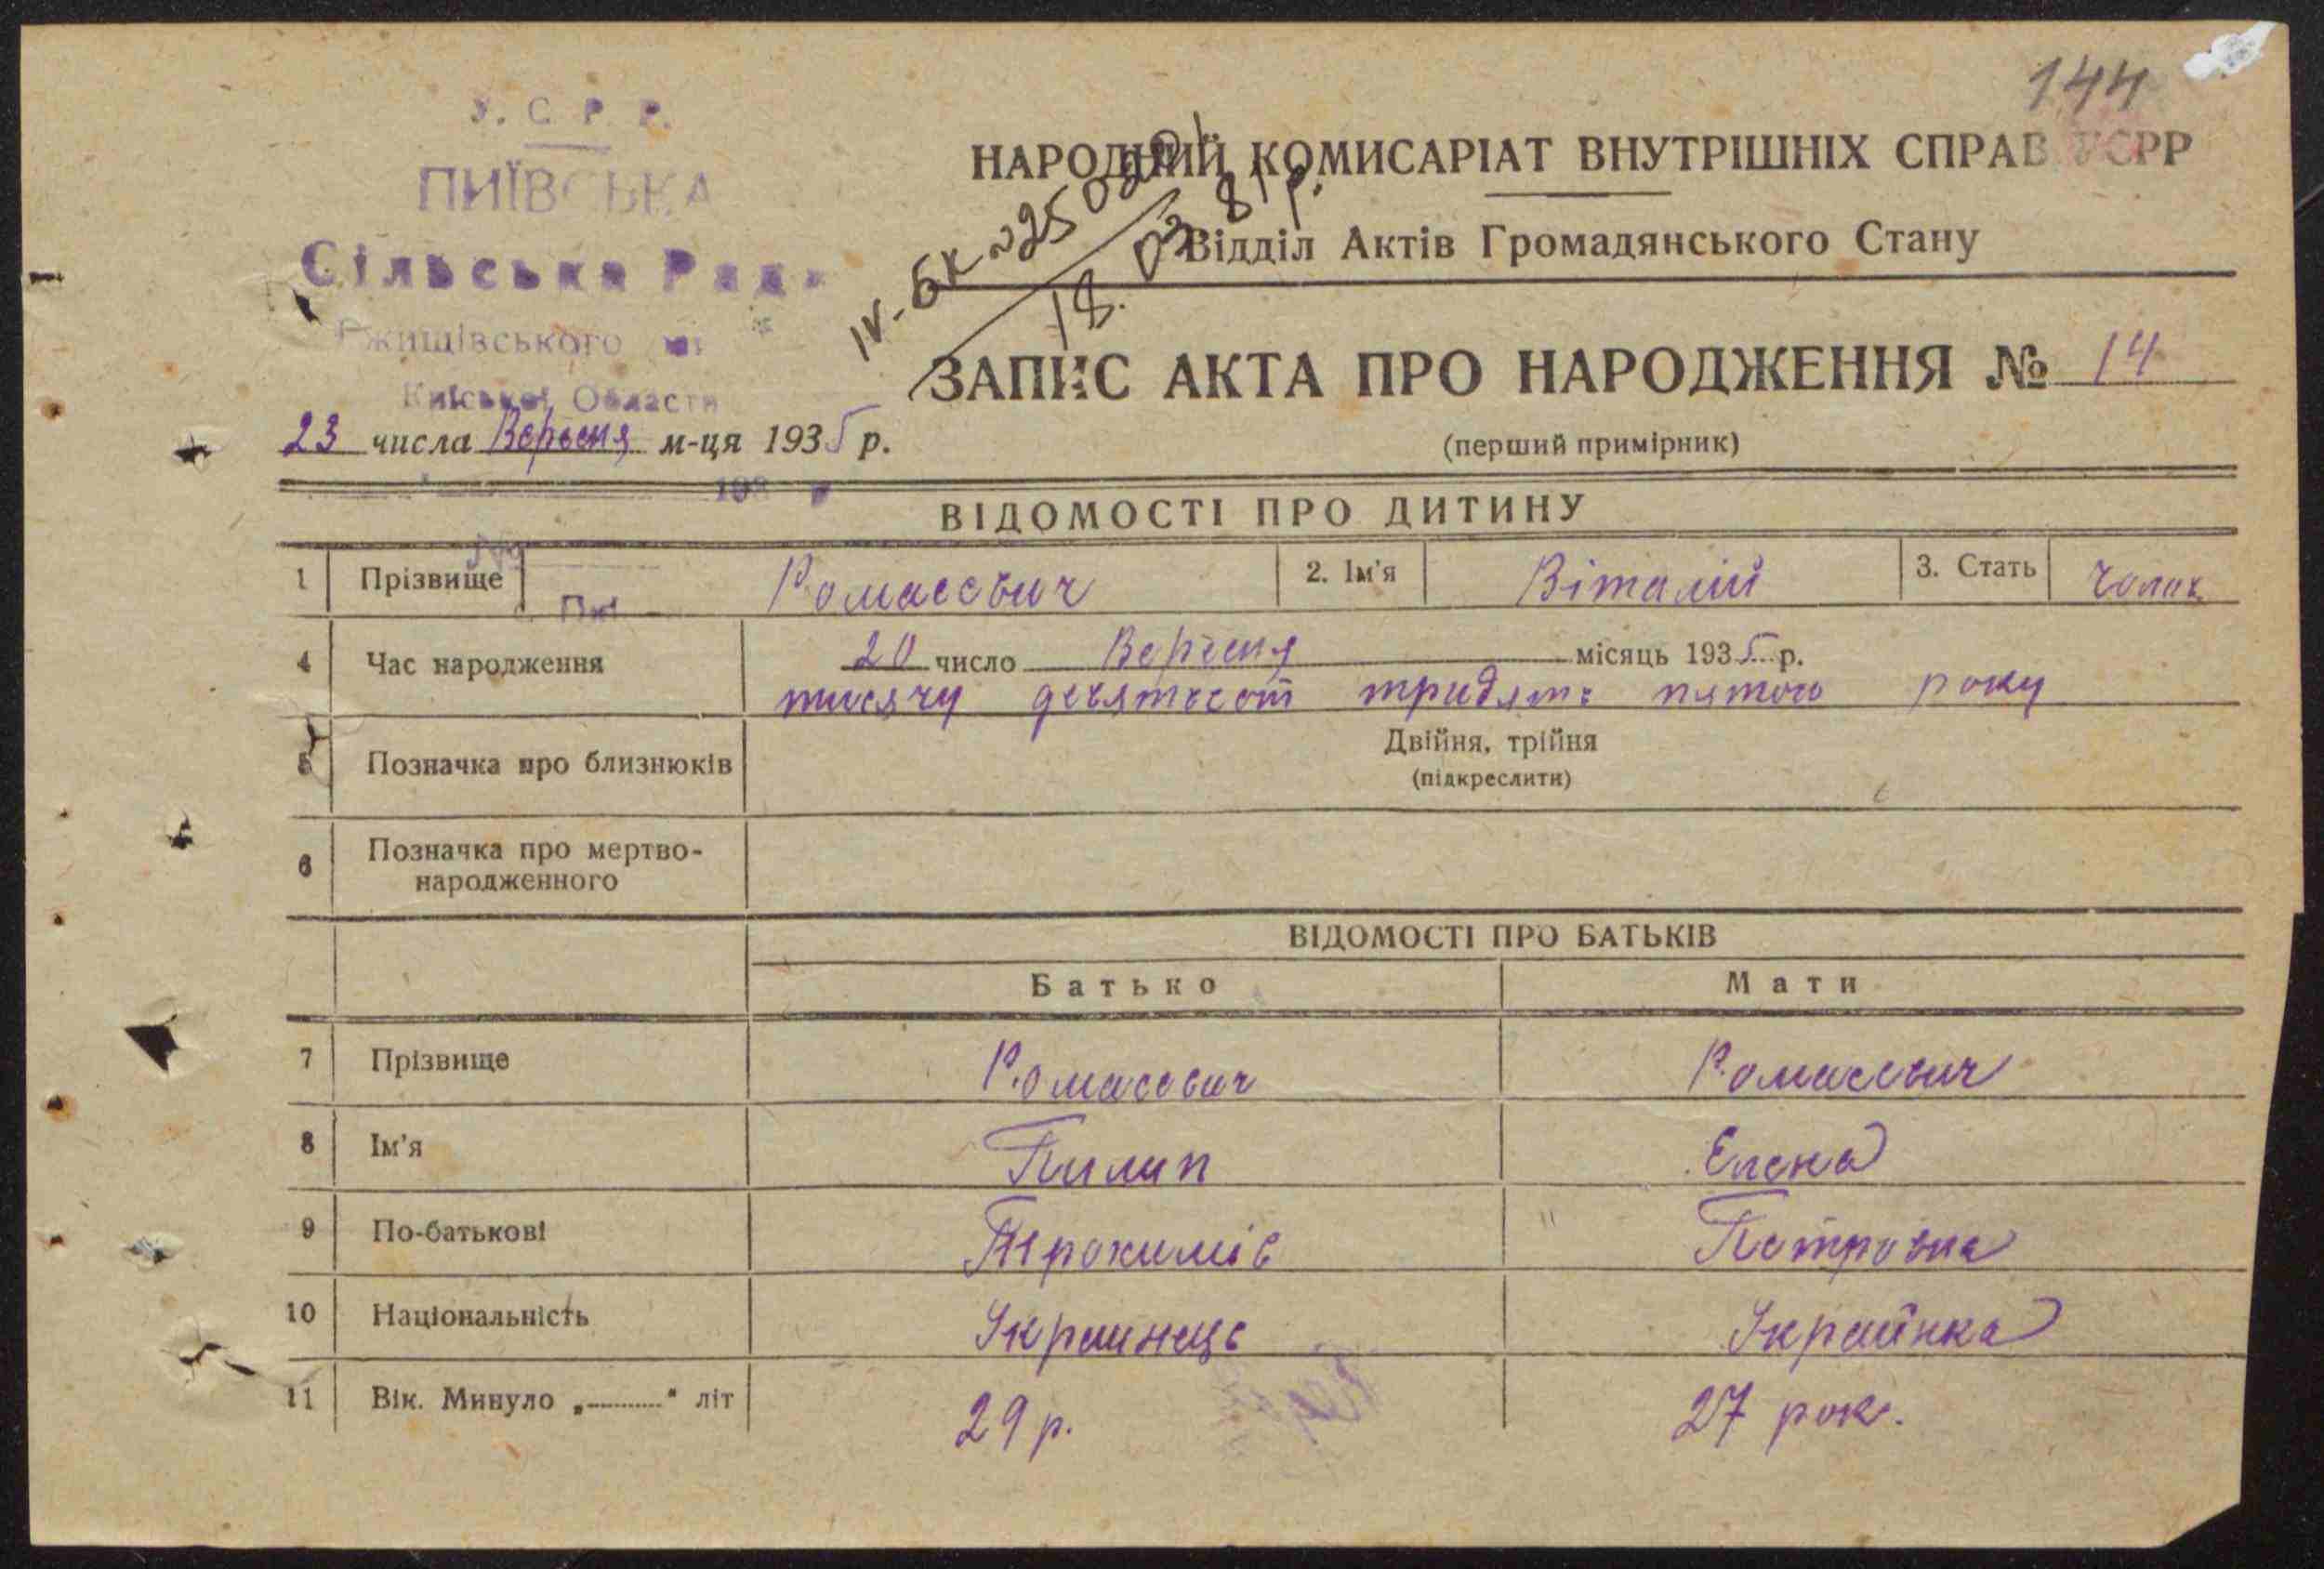 144
У. С. Р. Р.
ПИЇВСЬКА
Сільська Рада
Ржищівського
Київської Области
НАРОДНИЙ КОМИСАРІАТ ВНУТРІШНІХ СПРАВ УСРР
Відділ Актів Громадянського Стану
18. 03. 81 р.
ЗАПИС АКТА ПРО НАРОДЖЕННЯ № 14
23 числа Вересня м-ця 1935 р.
(перший примірник)
ВІДОМОСТІ ПРО ДИТИНУ
1 Прізвище Ромасевич 2. Ім'я Віталій 3. Стать Чолов.
4 Час народження 20 число Вересня місяць 1935 р.
тисячу девятьсот тридцять пятого року
5 Позначка про близнюків Двійня, трійня
(підкреслити)
6 Позначка про мертво-
народженного
ВІДОМОСТІ ПРО БАТЬКІВ
Батько Мати
7 Прізвище Ромасевич Ромасевич
8 Ім'я Пилип Елена
9 По-батькові Трохимів Петровна
10 Національність Украинець Украйнка
11 Вік. Минуло „ “ літ 29 р. 27 рок.